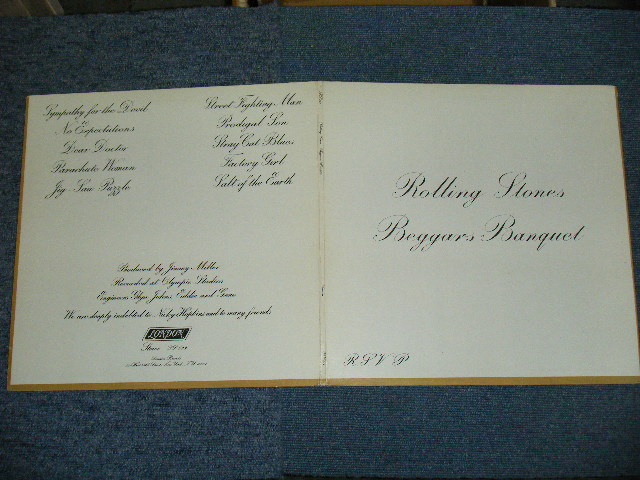 Sympathy for the Devil
No Expectations
Dear Doctor
Parachute Woman
Jig-Saw Puzzle
Street Fighting Man
Prodigal Son
Stray Cat Blues
Factory Girl
Salt of the Earth
Produced by Jimmy Miller
Recorded at Olympic Studios
Engineers Glyn Johns, Eddie and Gene
We are deeply indebted to Nicky Hopkins and to many friends
LONDON
Stereo
Rolling Stones
Beggars Banquet
R.S.V.P.